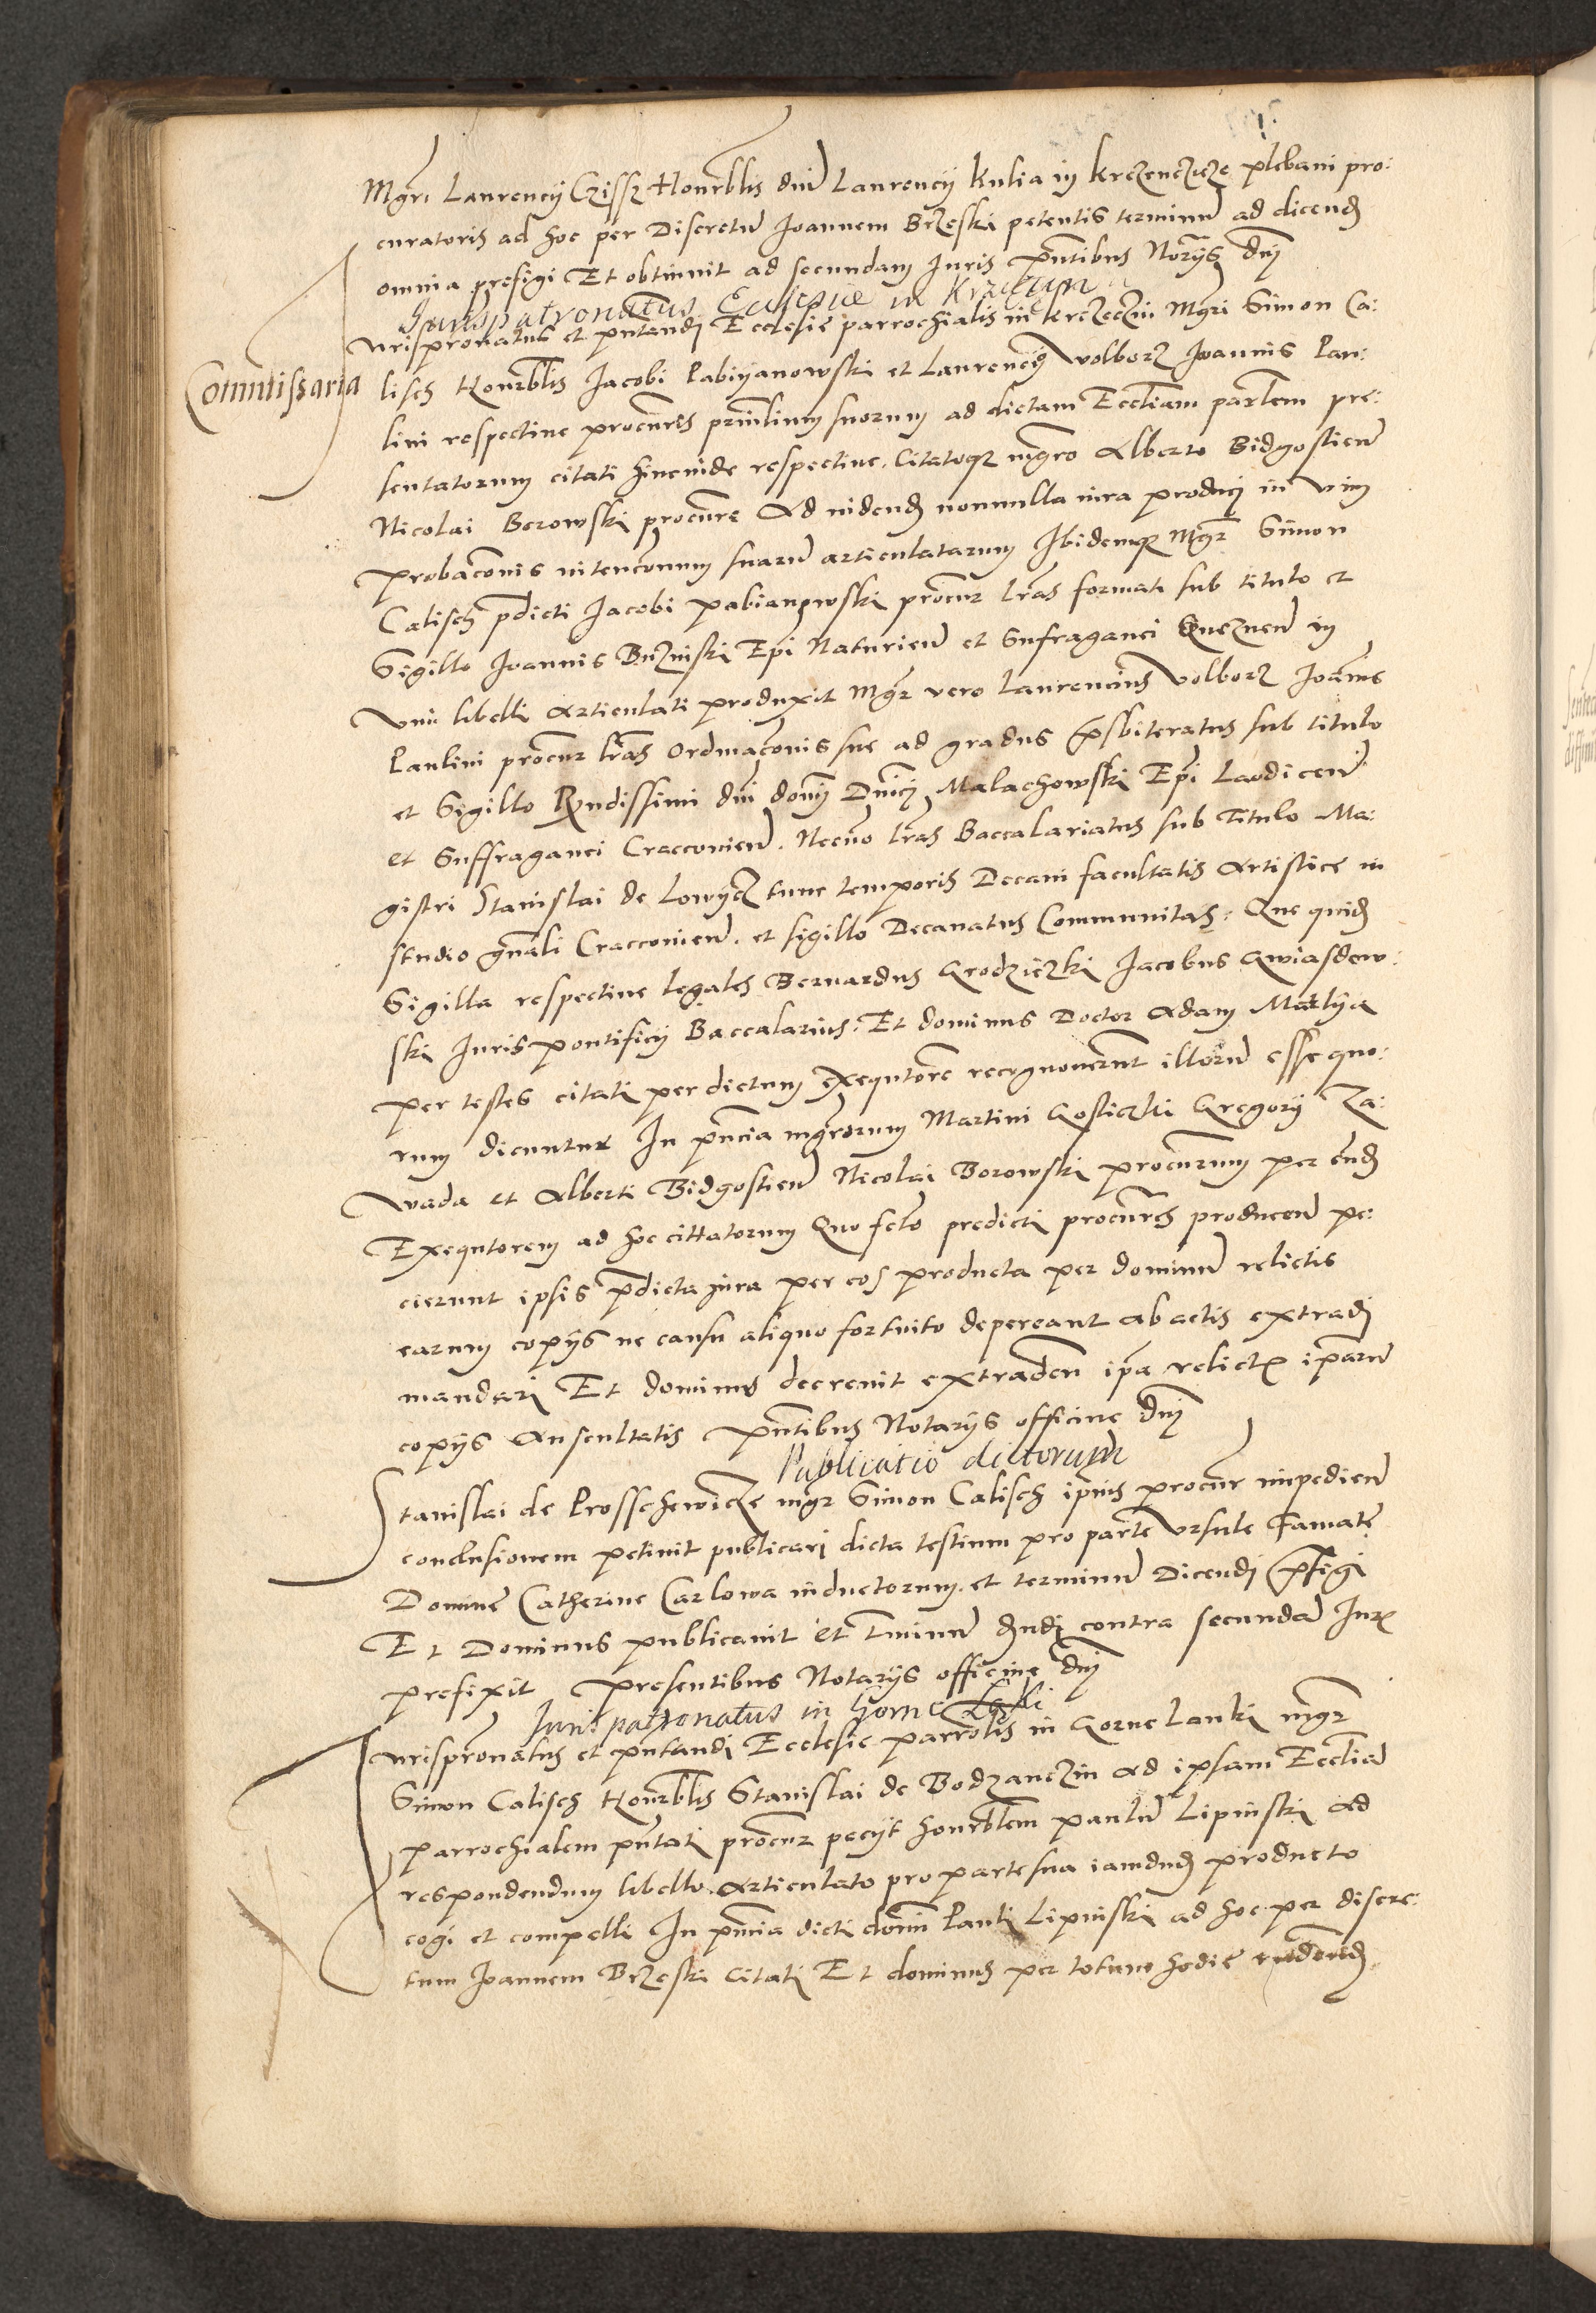 Mgri Laurencij Czissz Honrblis dni Laurencij Kulia in Krczenczicze plebani pro:
curatoris ad hoc per Discretu Joannem Brzeski petentis terminu ad dicend
omnia prefigi Et obtinuit ad secundam Juris pntibus Norijs dni
Jurispatronatus Ecclesie in
Jurispronatus et pntandi Ecclesie parrochialis in Krczeczin Mgri Simon Ca:
Committissaria
lisch Honrblis Jacobi Pabiyanowski et Laurencij Volborz Joannis Pau:
lini respective procures prinlium suorum ad dictam Eccliam parlem pre:
sentatorum citati hincinde respective. Citatoqz mgro Alberto Bidgostien
Nicolai Borowski procure Ad videnh nonnulla iura produci in vim
probaconis intenconum suaru articulatarum Ibidemqz Mgr Simon
Calisch pdicti Jacobi Pabianowski procur lras formati sub titulo et
Sigillo Joannis Buzinski Epi Naturien et Sufraganei Gneznen in
vim libelli Articulati produxit Mgr vero Laurencius Volborz Joanis
Paulini procur lras Ordinaconis sue ad gradus psbiteratus sub titulo
et Sigillo Rndissimi dni donj Dnici Malachowski Epi Laodicen
et Suffraganei Cracconien. Necno lras Baccalariatus sub Titulo Ma:
gistri Stanislai de Lowycz tunc temporis Decani facultatis Artistice in
studio gnali Cracconien. et sigillo Decanatus Communitas: Que quid
Sigilla respective legales Bernardus Grodziczki Jacobus Gwiasdow:
ski Juris pontificij Baccalarius. Et dominus Doctor Adam Matlya
per testes citati per dictum exequtore recognoverunt illoru esse quo:
rum dicuntur In pncia mgrorum Martini Gosticzki Gregorij Za:
wada et Alberti Bidgostien Nicolai Borowski procurum per eund
Exequtorem ad hoc cittatorum Quo fcto predicti procures producen pe:
cierunt ipsis pdicta iura per eos producta per dominu relictis
earum copijs ne causu aliquo fortuito depereant ab actis extradi
mandari Et dominus decrevit extraden ipa relictis iparu
copijs Auscultatis pntibus Notarijs officine dni
Publicatio dictorum
Stanislai de Prosschewicze mgr Simon Calisch ipius procur impedien
conclusionem petivit publicari dicta testium pro parte Ursule Famate
Domine Catherine Carlowa inductorum. et terminu Dicendi pfigi
Et Dominus publicavit et Tminu dndi contra secunda Juris
prefixit presentibus Notarijs officine dni
Juris patronatus in Gorne Laki
Jurispronatus et pntandi Ecclesie parrolis in Gorne Lanki mgr
Simon Calisch Honrblis Stanislai de Bodzanczin Ad ipsam Ecclia
parrochialem pntati procur pecijt honrblem paulu Lipinski Ad
respondendum libello. Articulato pro parte sua iamdud producto
cogi et compelli In pncia dicti domi Pauli Lipinski ad hoc per discre:
tum Joannem Brzeski citati Et dominus per totum hodie